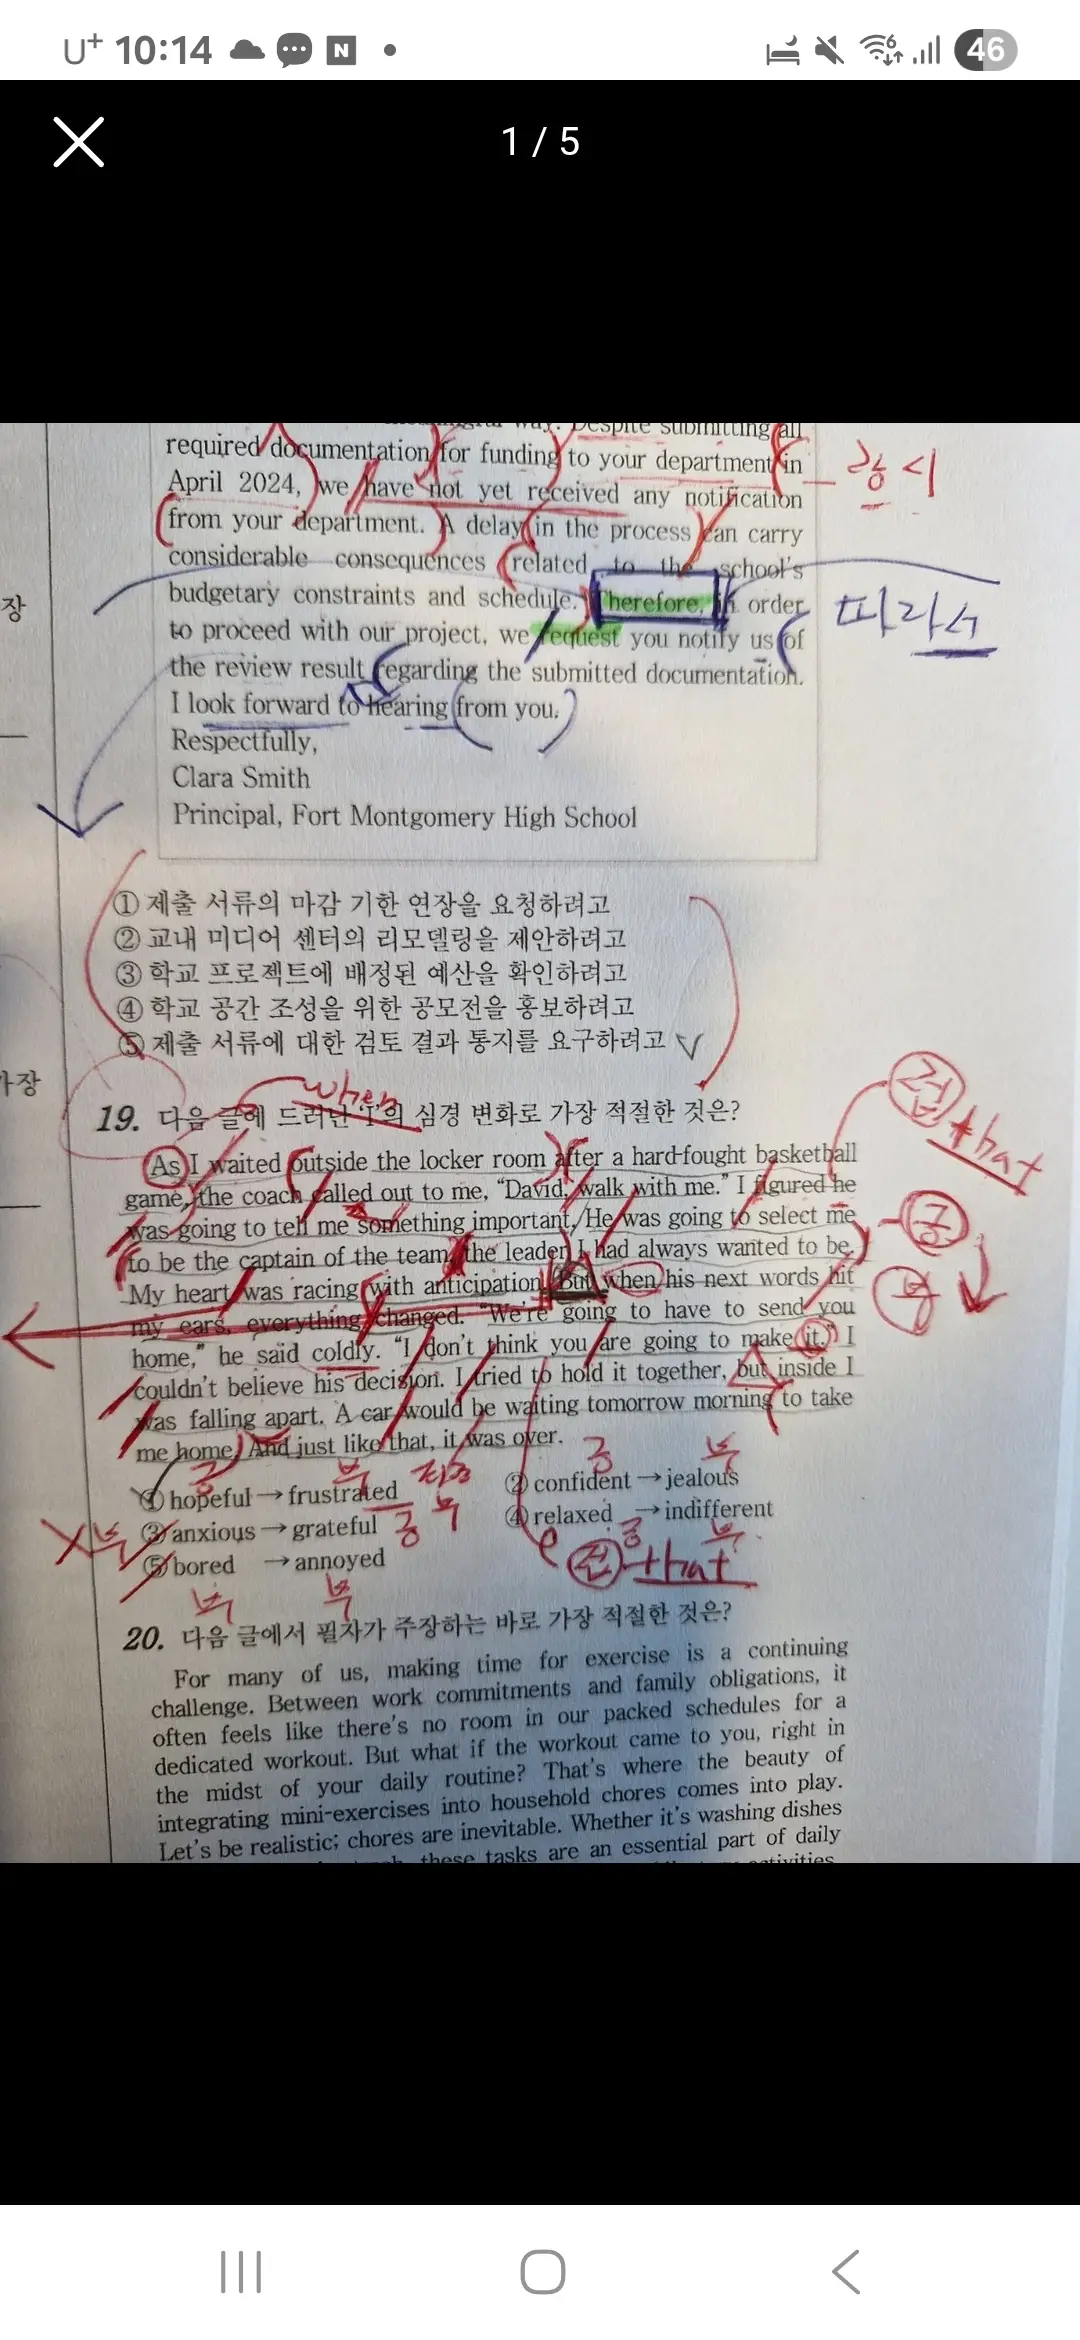 U+ 10:14 N 46
1 / 5
way. Despite submitting all
required documentation for funding to your department in
강시
April 2024, we have not yet received any notification
from your department. A delay in the process can carry
considerable consequences related to the school's
장
budgetary constraints and schedule. Therefore, in order
따라서
to proceed with our project, we request you notify us of
the review result regarding the submitted documentation.
I look forward to hearing from you.
Respectfully,
Clara Smith
Principal, Fort Montgomery High School
① 제출 서류의 마감 기한 연장을 요청하려고
② 교내 미디어 센터의 리모델링을 제안하려고
③ 학교 프로젝트에 배정된 예산을 확인하려고
④ 학교 공간 조성을 위한 공모전을 홍보하려고
⑤ 제출 서류에 대한 검토 결과 통지를 요구하려고
가장
when
19. 다음 글에 드러난 'I'의 심경 변화로 가장 적절한 것은?
접 that
As I waited outside the locker room after a hard-fought basketball
game, the coach called out to me, “David, walk with me.” I figured he
was going to tell me something important. He was going to select me
긍
to be the captain of the team, the leader I had always wanted to be.
부
My heart was racing with anticipation. But when his next words hit
my ears, everything changed. “We're going to have to send you
home,” he said coldly. “I don't think you are going to make it.” I
couldn't believe his decision. I tried to hold it together, but inside I
was falling apart. A car would be waiting tomorrow morning to take
me home. And just like that, it was over.
긍 부 긍 부
① hopeful → frustrated ② confident → jealous
③ anxious → grateful ④ relaxed → indifferent
부 긍 부 긍 부
⑤ bored → annoyed
접 that
부 부
20. 다음 글에서 필자가 주장하는 바로 가장 적절한 것은?
For many of us, making time for exercise is a continuing
challenge. Between work commitments and family obligations, it
often feels like there's no room in our packed schedules for a
dedicated workout. But what if the workout came to you, right in
the midst of your daily routine? That's where the beauty of
integrating mini-exercises into household chores comes into play.
Let's be realistic; chores are inevitable. Whether it's washing dishes
these tasks are an essential part of daily